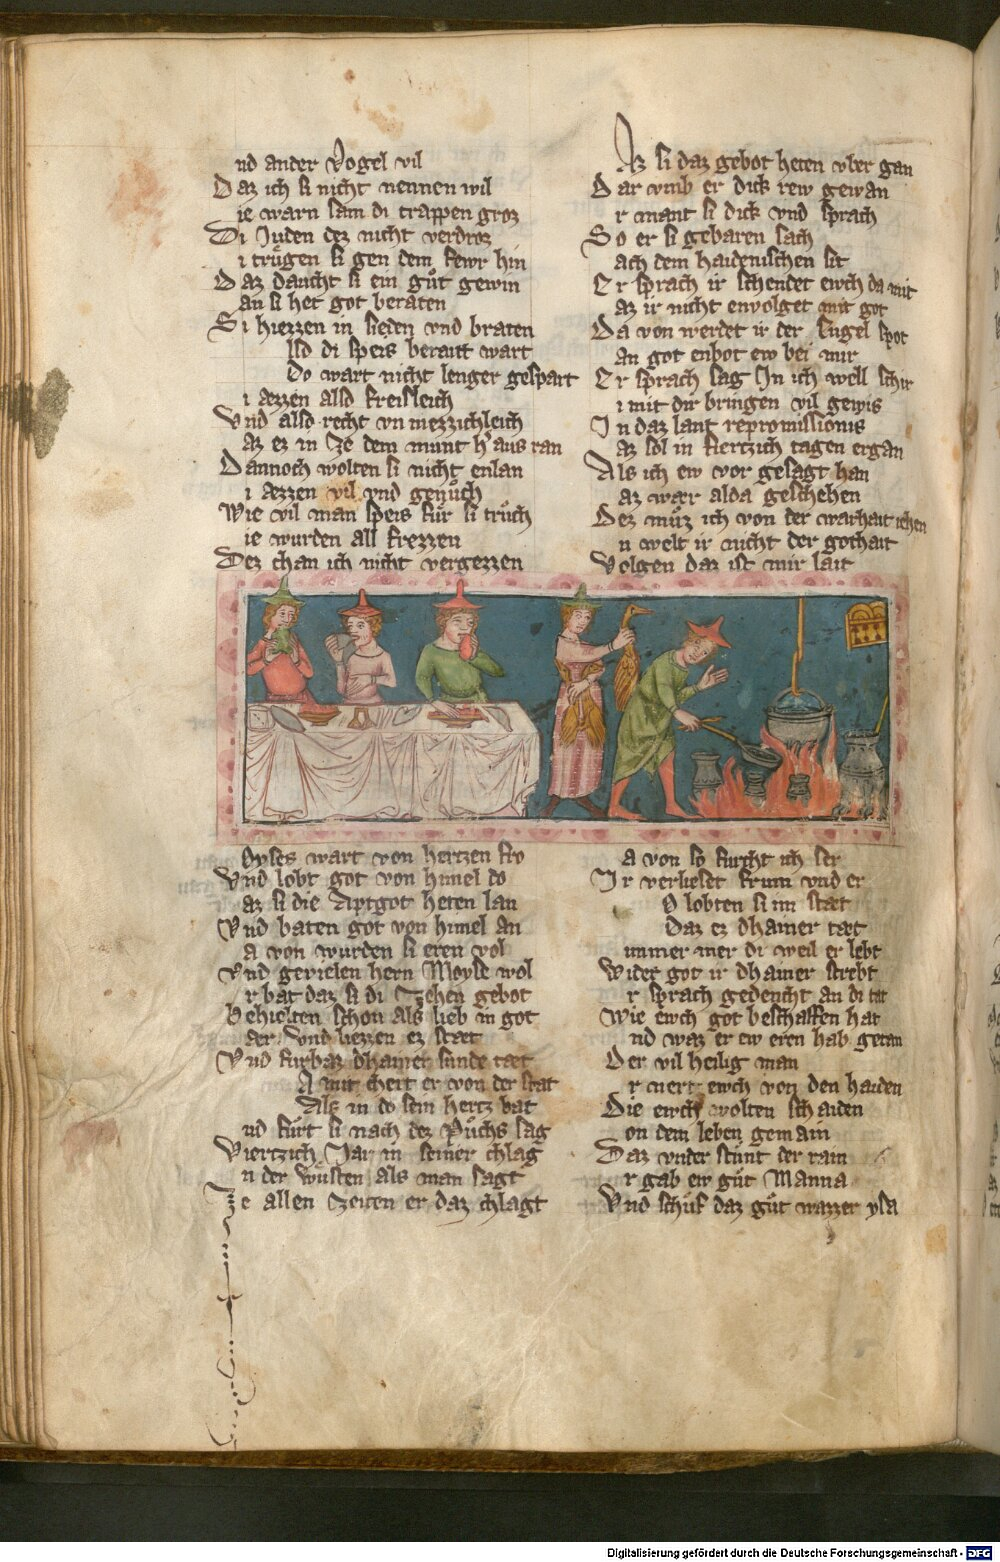 nd ander Vogel vil
Daz ich si nicht nennen wil
ie warn sam di trappen groz
Di Juden dez nicht verdroz
i trůgen si gen dem fewr hin
Daz daucht si ein gůt gewin
an si het got beraten
Si hiezzen in sieden vnd braten
lsd di speis beraitt wart
Do wart nicht lenger gespart
i æzzen alsd freisleich
Vnd alsd recht vn mezzichleich
az ez in ze dem munt h aus ran
Dannoch wolten si nicht enlan
i æzzen vil vnd genůch
Wie vil man speis fur si trůch
ie wurden all frezzen
Dez chan ich nicht vergezzen
oyses wart von hertzen fro
Vnd lobt got von himel do
az si die Aptgot heten lan
Vnd baten got von himel an
a von wurden si eren vol
Vnd gevielen hern Moyse wol
r bat daz si di zehen gebot
Behielten schon als lieb in got
ær vnd liezzen ez stæt
Vnd furbaz dhainer sunde tæt
A mit chert er von der stat
Als in do sein hertz bat
nd fůrt si nach dez Půchs sag
Viertzich Jar in seiner chlag
n der wůsten als man sagt
Ze allen zeiten er daz chlagt
Az si daz gebot heten vber gan
Dar vmb er dick rew gewan
r mant si dick vnd sprach
So er si gebaren sach
ach dem haidenischen sit
Er sprach ir schendet ewch da mit
az ir nicht envolget mit got
Da von werdet ir der Engel spot
an got enbot ew bei mir
Er sprach sag In ich well schir
i mit dir bringen vil gewis
In daz lant repromissionis
az sol in fiertzich tagen ergan
Als ich ew vor gesagt han
az wær alda geschehen
Dez můz ich von der warhait iehen
n welt ir nicht der gothait
Volgen daz ist mir lait
a von so furcht ich ser
Ir verlieset frum vnd er
O lobten si im stæt
Daz ez dhainer tæt
immer mer di weil er lebt
Wider got ir dhainer strebt
r sprach gedencht an di tat
Wie ewch got beschaffen hat
nd waz er ew eren hab getan
Der vil heilig man
r nert ewch von den haiden
Die ewch wolten schaiden
on dem leben gemain
Daz vnder stůnt der rain
r gab ew gůt Manna
Vnd schůf daz gůt wazzer ysa
Digitalisierung gefördert durch die Deutsche Forschungsgemeinschaft - DFG